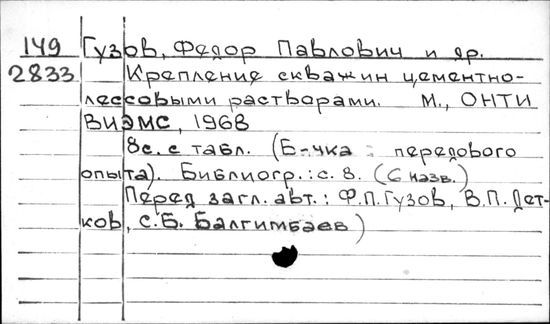 149 Гузов, Федор Павлович и др.
2833 Крепление скважин цементно-
лессовыми растворами. М., ОНТИ
ВИЭМС, 1968
8с. с табл. (Б-чка передового
опыта). Библиогр.: с. 8. (6 назв.)
Перед загл. авт.: Ф.П. Гузов, В.П. Дет-
ков, С.Б. Балгимбаев)